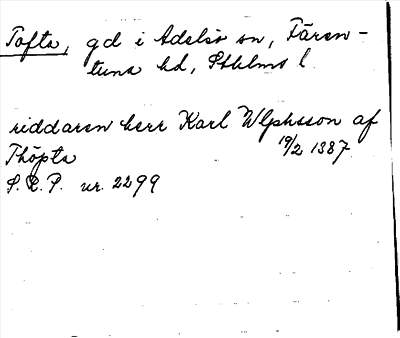 Tofta, gd i Adelsö sn, Fären-
tuna hd, Sthlms l.
riddaren herr Karl Wlphsson af
Thöpta 19/2 1387
S.R.P. nr. 2299